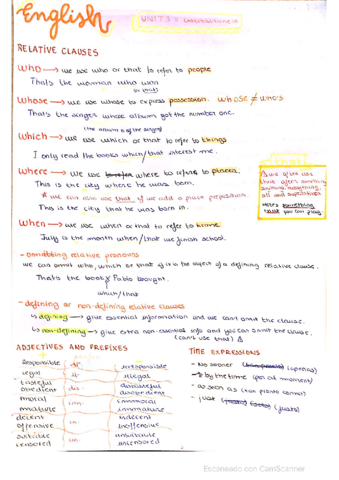 English
UNIT 3:
RELATIVE CLAUSES
Who → we use who or that to refer to people
That's the woman who won
or that
Whose → we use whose to express possession. WHOSE ≠ WHO'S
That's the singer whose albums got the number one.
(the album is of the singer)
Which → we use which or that to refer to things
I only read the books which/that interest me.
Where → we use where to refer to places.
This is the city where he was born.
* we can also use that if we add a place preposition.
This is the city that he was born in.
⚠ we often use
that after anything
all and superlatives
Here's something
that you can find
When → we use when or that to refer to time
July is the month when/that we finish school.
- Omitting relative pronouns
we can omit who, which or that if it is the object of a defining relative clause.
That's the book Pablo bought.
which/that
- defining or non-defining relative clauses
↳ defining → give essential information and we can't omit the clause.
↳ non-defining → give extra non-essential info and you can omit the clause.
(can't use that) ⚠
ADJECTIVES AND PREFIXES
TIME EXPRESSIONS
responsible ir- irresponsible
legal il- illegal
tasteful dis- distasteful
obedient disobedient
moral im- immoral
mature immature
decent in- indecent
offensive inoffensive
suitable un- unsuitable
censored uncensored
- No sooner
- by the time
- as soon as
- just
Escaneado con CamScanner